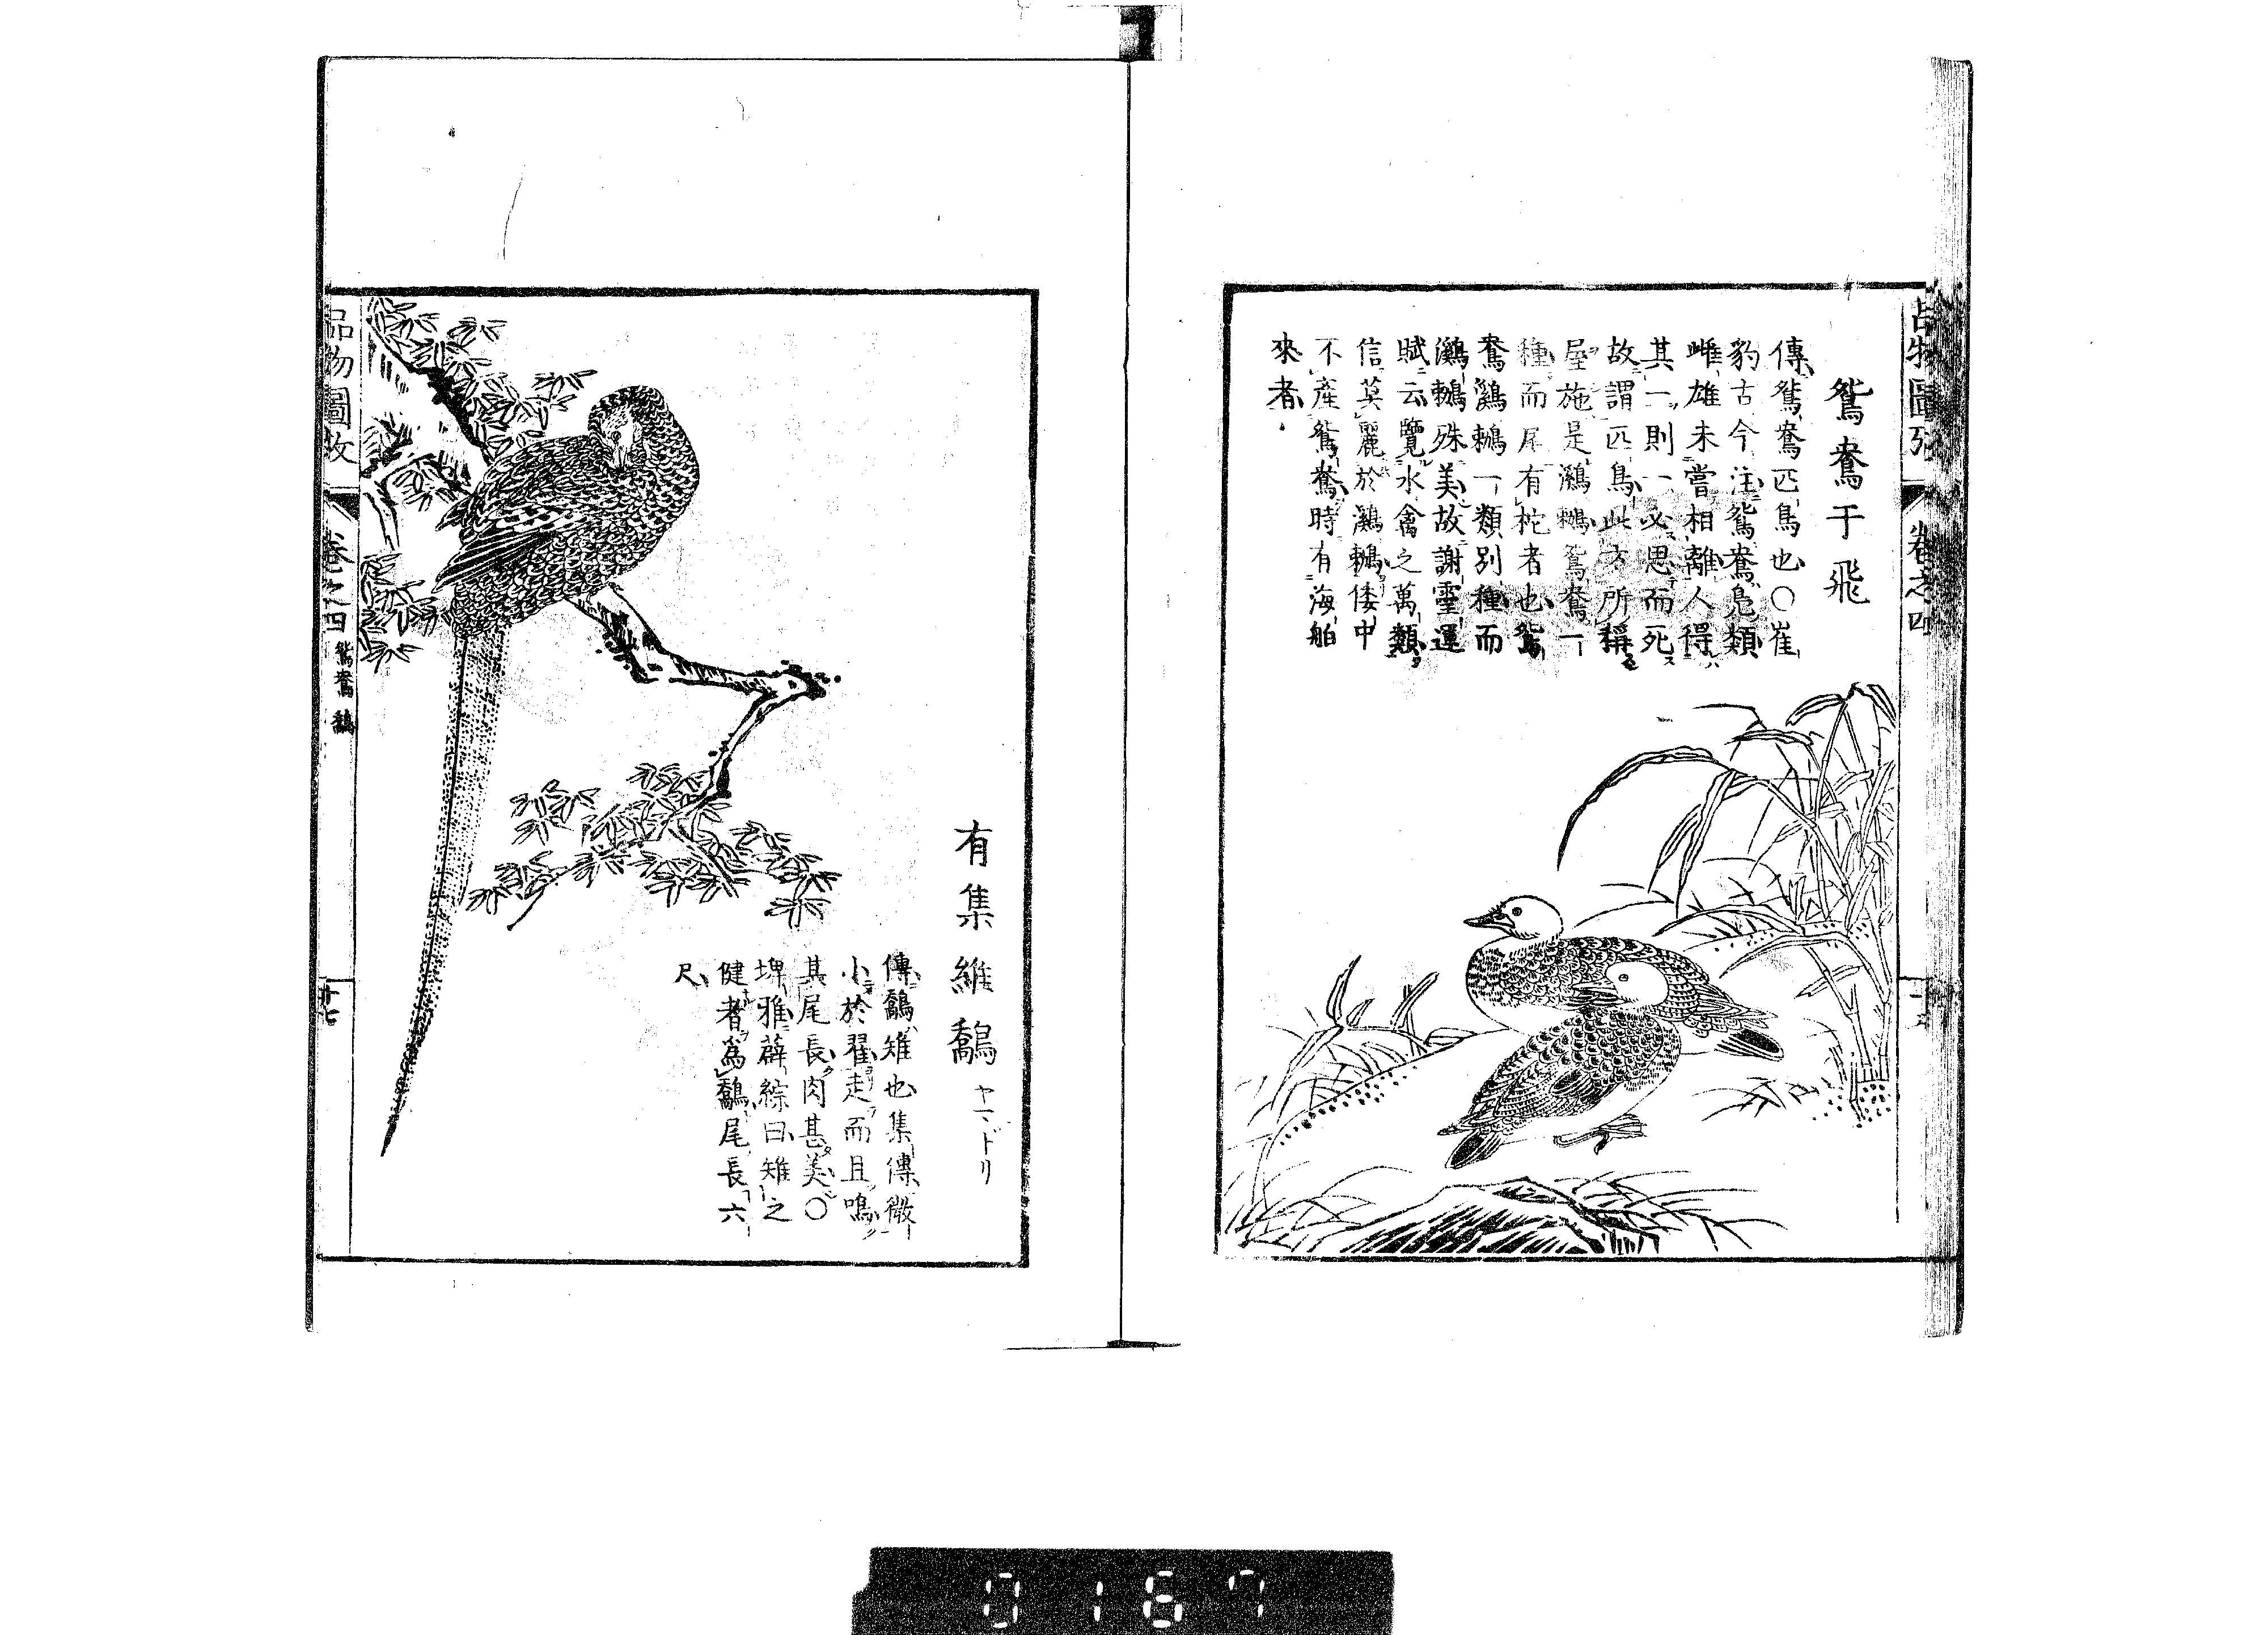 鴛鴦于飛
傳鴛鴦匹鳥也○崔
豹古今注鴛鴦鳧類
雌雄未嘗相離人得
其一則一必思而死
故謂匹鳥此方所稱
屋施是鸂鶒鴛鴦一
種而尾有柁者也鴛
鴦鸂鶒一類別種而
鸂鶒殊美故謝靈運
賦云覽水禽之萬類
信莫麗於鸂鶒倭中
不產鴛鴦時有海舶
來者
卷之四
有集維鷮 ヤマドリ
傳鷮雉也集傳微
小於翟走而且鳴
其尾長肉甚美○
埤雅薛綜曰雉之
健者爲鷮尾長六
尺
品物圖攷 卷之四 鴛鴦 鷮 十七
0167